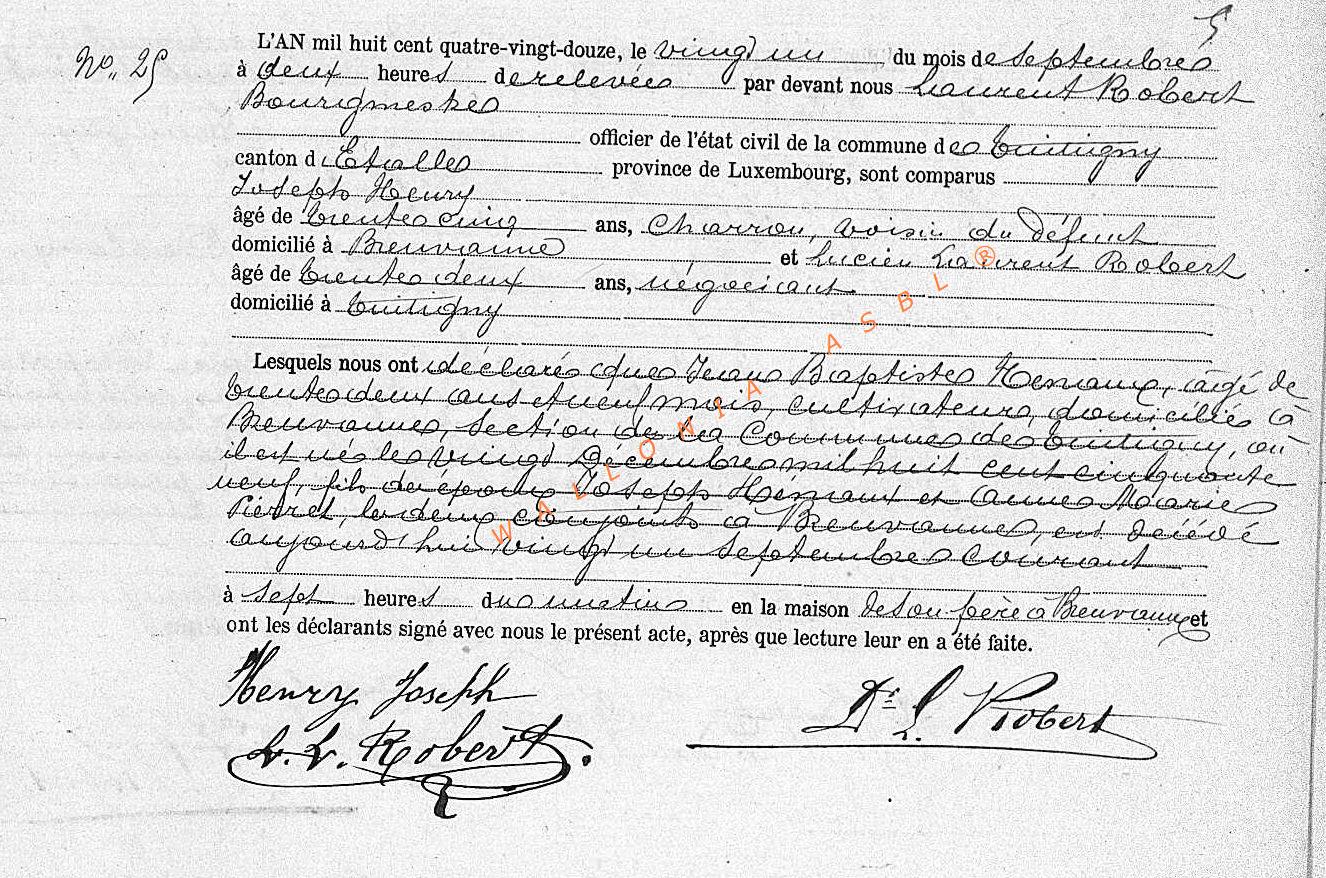 5
No. 25
L'AN mil huit cent quatre-vingt-douze, le vingt un du mois de septembre
à deux heures de relevée par devant nous Laurent Robert
Bourgmestre
officier de l'état civil de la commune de Tintigny
canton d'Etalle province de Luxembourg, sont comparus
Joseph Henry
âgé de trente cinq ans, charron, voisin du défunt
domicilié à Breuvanne et Lucien Laurent Robert
âgé de trente deux ans, négociant
domicilié à Tintigny
Lesquels nous ont déclaré que Jean Baptiste Henaux, âgé de
trente deux ans et neuf mois, cultivateur, domicilié à
Breuvanne, section de la Commune de Tintigny, où
il est né le vingt Décembre mil huit cent cinquante
neuf, fils de époux Joseph Hénaux et Anne Marie
Pierret, les deux conjoints à Breuvanne, est décédé
aujourd'hui vingt un septembre courant
à sept heures du matin en la maison de son père à Breuvanne et
ont les déclarants signé avec nous le présent acte, après que lecture leur en a été faite.
Henry Joseph
Dr L. Robert
L. L. Robert.
WALLONIA ASBL ®